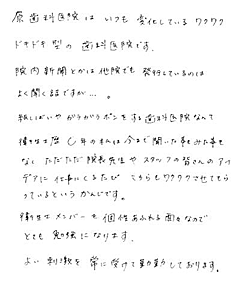 原歯科医院は いつも 変化している ワクワク
ドキドキ型の 歯科医院です。
院内新聞とかは他院でも 発行しているのは
よく聞く話ですが…。
紙しばいや ガラガラポンをする歯科医院なんて
衛生士歴 6年の私は今まで聞いた事もみた事も
なく ただただ 院長先生や スタッフの皆さんのアイ
デアに 仕事にくるたび こちらもワクワクさせてもら
っているという かんじです。
衛生士メンバーも 個性あふれる面々なので
とても 勉強になります。
よい 刺激を 常に受けて勤務しております。